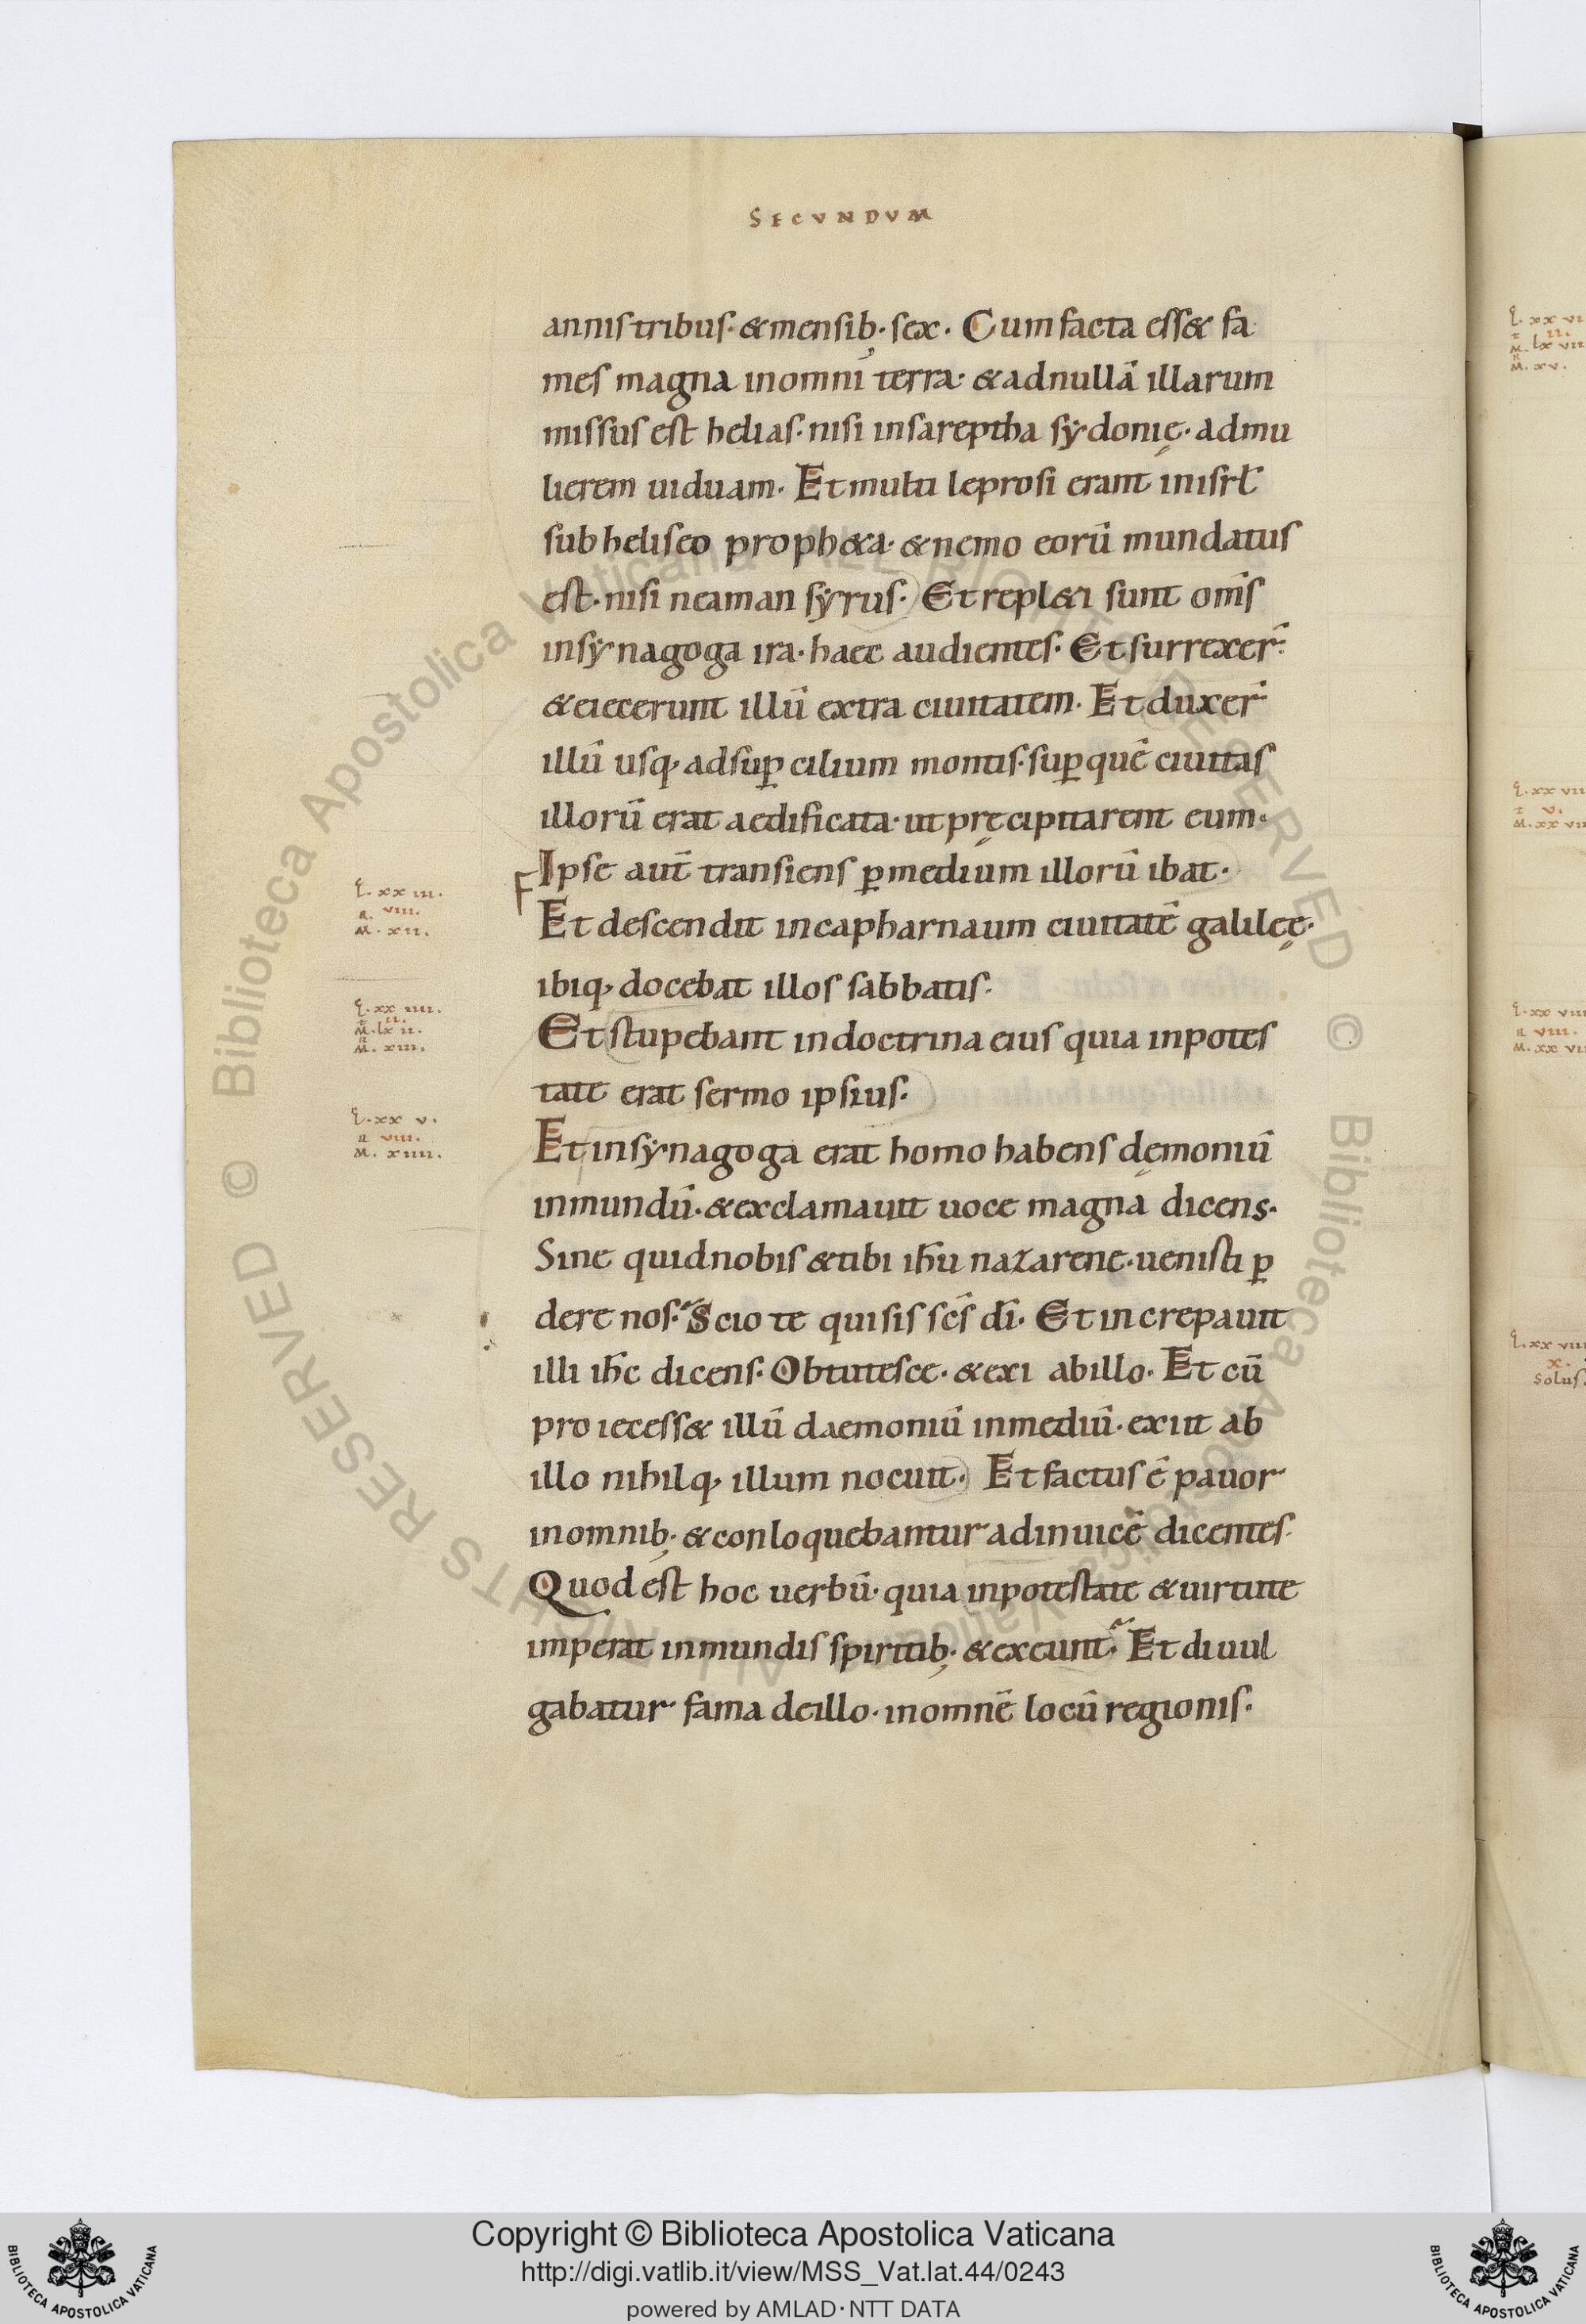 SECVNDVM
annis tribus· & mensib; sex· Cum facta ess& fa
mes magna in omni terra· & ad nullā illarum
missus est helias· nisi in sareptha sydonię· ad mu
lierem uiduam· Et multi leprosi erant in isrl̄
sub heliseo proph&a· & nemo eorū mundatus
est· nisi neaman syrus· Et repl&i sunt om̄s
in synagoga ira· haec audientes· Et surrexer̄
& eiecerunt illū extra ciuitatem· Et duxer̄
illū usq; ad sup̱cilium montis· sup̱ quē ciuitas
illorū erat aedificata· ut pręcipitarent eum·
Ipse aut̄ transiens p̱ medium illorū ibat·
L· xx iii·
R· viii·
M· xii·
Et descendit in capharnaum ciuitatē galileę·
ibiq; docebat illos sabbatis·
L· xx iiii·
ii·
M· lx ii·
M· xiii·
Et stupebant in doctrina eius quia in potes
tate erat sermo ipsius·
L· xx v·
R viii·
M· xiiii·
Et in synagoga erat homo habens dęmoniū
inmundū· & exclamauit uoce magna dicens·
Sine quid nobis & tibi ih̄u nazarene· uenisti p̱
dere nos· Scio te qui sis sc̄s dī· Et increpauit
illi ih̄c dicens· Obmutesce· & exi ab illo· Et cū
proiecess& illū daemoniū in mediū· exiit ab
illo nihilq; illum nocuit· Et factus ē pauor
in omnib; & conloquebantur ad inuicē dicentes·
Quod est hoc uerbū· quia in potestate & uirtute
imperat inmundis spiritib; & exeunt· Et diuul
gabatur fama de illo· in omnē locū regionis·
Copyright © Biblioteca Apostolica Vaticana
http://digi.vatlib.it/view/MSS_Vat.lat.44/0243
powered by AMLAD·NTT DATA
BIBLIOTECA APOSTOLICA VATICANA
BIBLIOTECA APOSTOLICA VATICANA